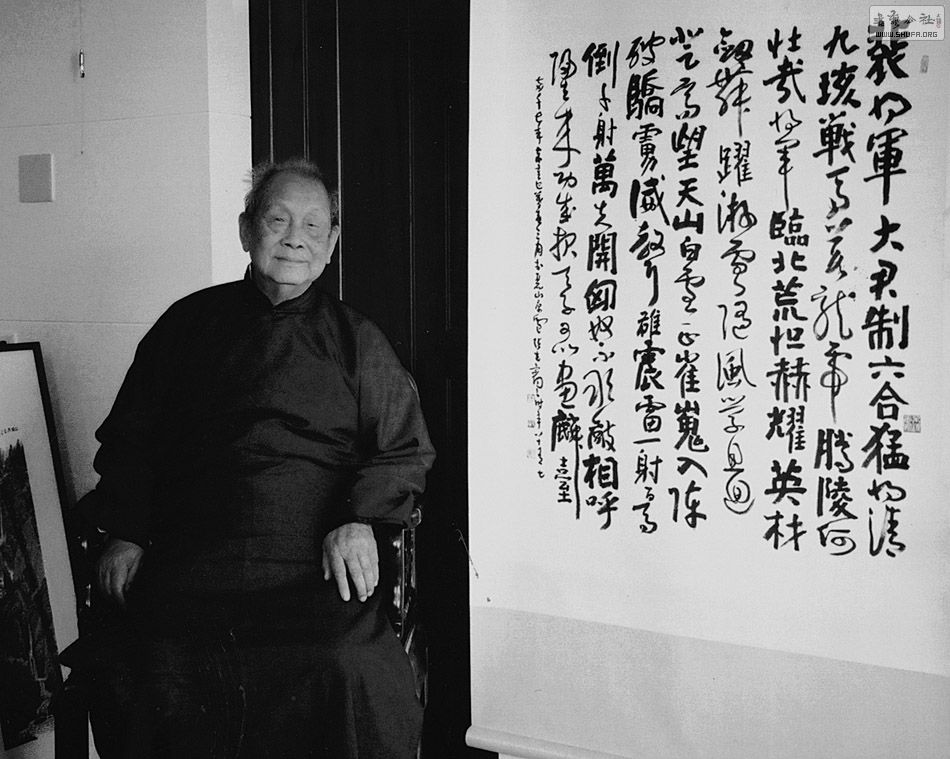 裴将軍大君制六合猛将清
九垓戰馬若龍虎騰陵何
壮哉将軍臨北荒恒赫耀英材
劍舞躍游電随風縈且迴
登高望天山白雲正崔嵬入陣
破驕虜威聲雄震雷一射百馬
倒再射萬夫開匈奴不敢敵相呼
歸去来功成報天子可以畫麟臺
书法公社
WWW.SHUFA.ORG